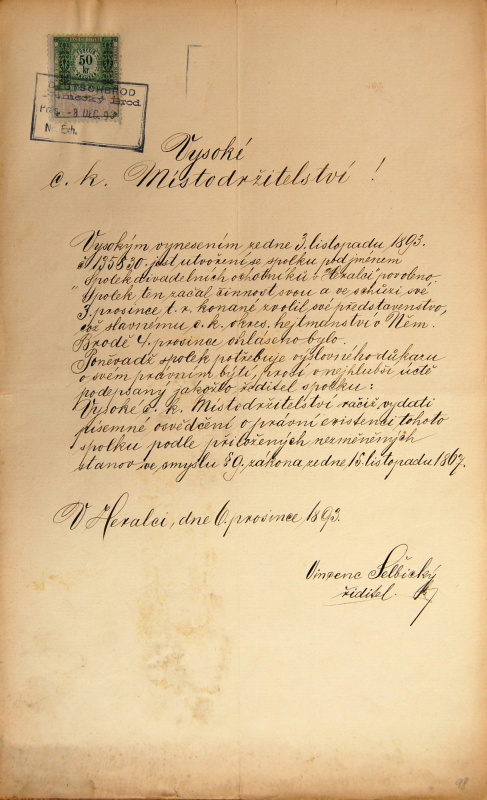 50
kr
DEUTSCHBROD
Německý Brod
8 DEC. 93
N. Exh.
Vysoké
c. k. Místodržitelství !
Vysokým vynesením ze dne 3. listopadu 1893.
č 125830. jest utvoření se spolku pod jménem
"Spolek divadelních ochotníků v Heralci" povoleno.
Spolek ten začal činnost svou a ve schůzi své
3. prosince t. r. konané zvolil své představenstvo,
což slavnému c. k. okres. hejtmanství v Něm.
Brodě 4. prosince ohlášeno bylo.
Poněvadž spolek potřebuje výslovného důkazu
o svém právním bytí, prosí v nejhlubší úctě
podepsaný jakožto ředitel spolku:
Vysoké c. k. Místodržitelství račiž vydati
písemné osvědčení o právní existenci tohoto
spolku podle přiložených nezměněných
stanov, ve smyslu § 9. zákona ze dne 15. listopadu 1867.
V Heralci, dne 6. prosince 1893.
Vinzenc
ředitel.
98